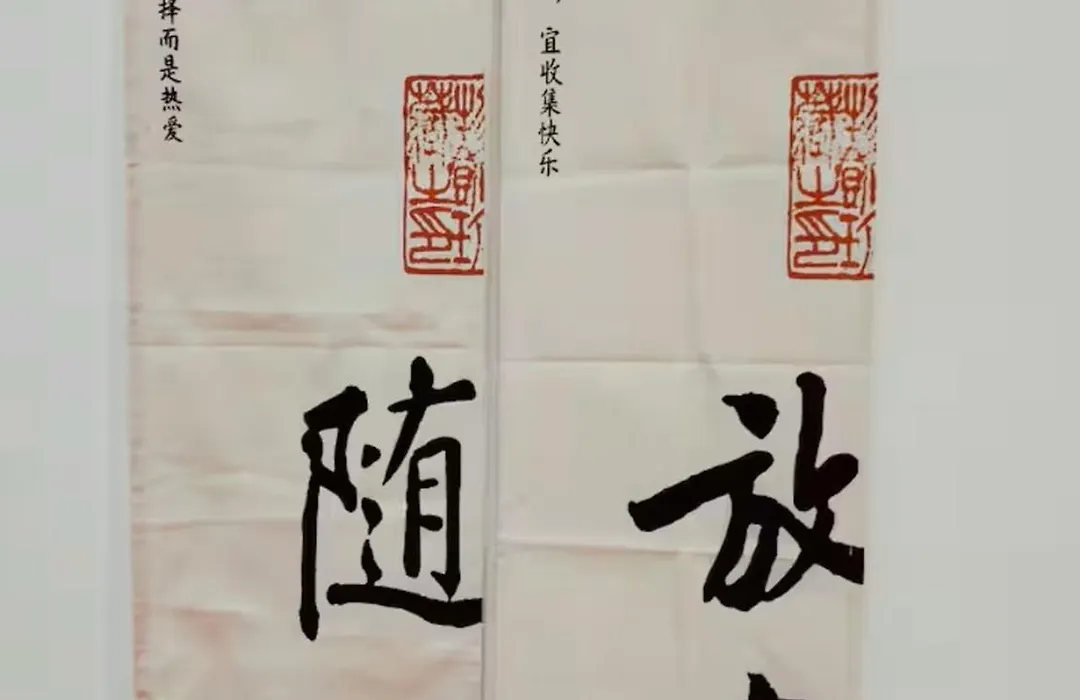 择而是热爱
随
宜收集快乐
放